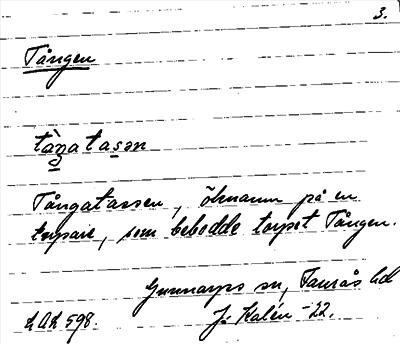 3.
Tången
tåŋatasən
Tångatassen, öknamn på en
torpare, som bebodde torpet Tången.
Gunnarps sn, Faurås hd
LAL 598. J. Kalén -22.